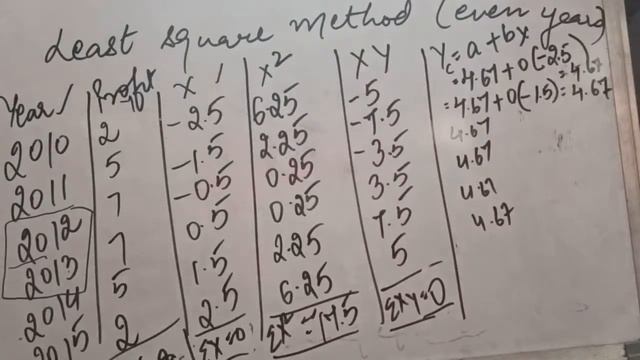 Least square method (even years)
Year Profit X X² XY Yc = a + bx
2010 2 -2.5 6.25 -5 = 4.67 + 0(-2.5) = 4.67
2011 5 -1.5 2.25 -7.5 = 4.67 + 0(-1.5) = 4.67
2012 7 -0.5 0.25 -3.5 4.67
2013 7 0.5 0.25 3.5 4.67
2014 5 1.5 2.25 7.5 4.67
2015 2 2.5 6.25 5 4.67
ΣX=0 ΣX² = 17.5 ΣXY=0